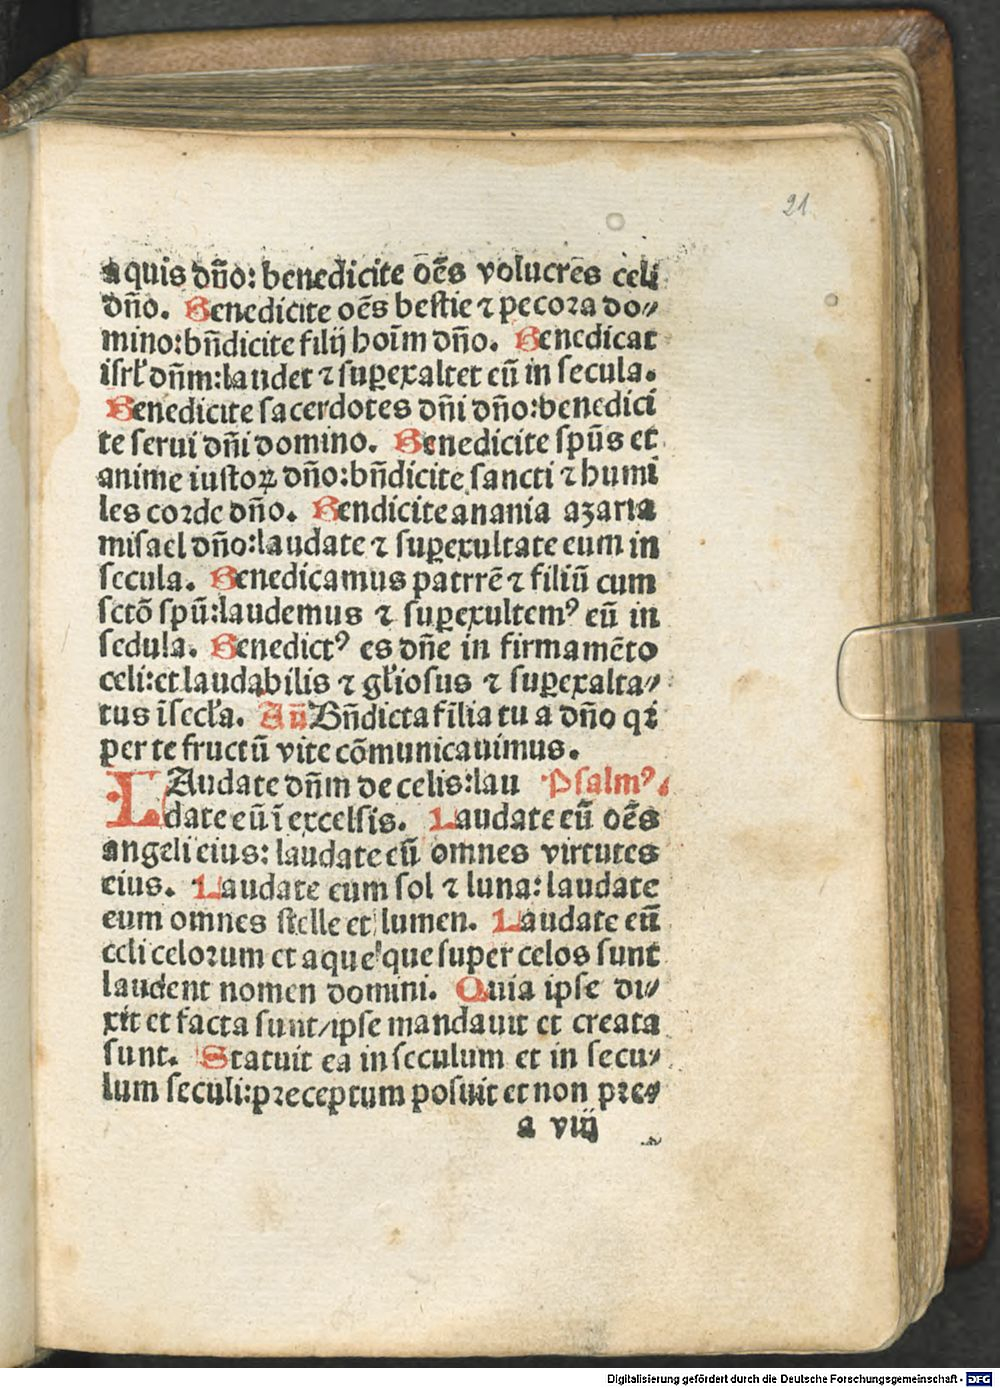 21
aquis dño: benedicite oẽs volucres celi
dño. Benedicite oẽs bestie ⁊ pecora do⸗
mino: bñdicite filij hoĩm dño. Benedicat
isrl̓ dñm: laudet ⁊ suꝑexaltet eũ in secula.
Benedicite sacerdotes dñi dño: benedici
te serui dñi domino. Benedicite spũs et
anime iustoꝝ dño: bñdicite sancti ⁊ humi
les corde dño. Bendicite anania azaria
misael dño: laudate ⁊ suꝑexultate eum in
secula. Benedicamus patrrẽ ⁊ filiũ cum
sctõ spũ: laudemus ⁊ suꝑexultemꝰ eũ in
sedula. Benedictꝰ es dñe in firmamẽto
celi: et laudabilis ⁊ gl̓iosus ⁊ suꝑexalta⸗
tus ĩ secl̓a. Añ Bñdicta filia tu a dño qꝛ
per te fructũ vite cõmunicauimus.
LAudate dñm de celis: lau Psalmꝰ.
date eũ ĩ excelsis. Laudate eũ oẽs
angeli eius: laudate eũ omnes virtutes
eius. Laudate eum sol ⁊ luna: laudate
eum omnes stelle et lumen. Laudate eũ
celi celorum et aque que super celos sunt
laudent nomen domini. Quia ipse di⸗
xit et facta sunt/ipse mandauit et creata
sunt. Statuit ea in seculum et in secu⸗
lum seculi: preceptum posuit et non pre⸗
a viij
Digitalisierung gefördert durch die Deutsche Forschungsgemeinschaft - DFG